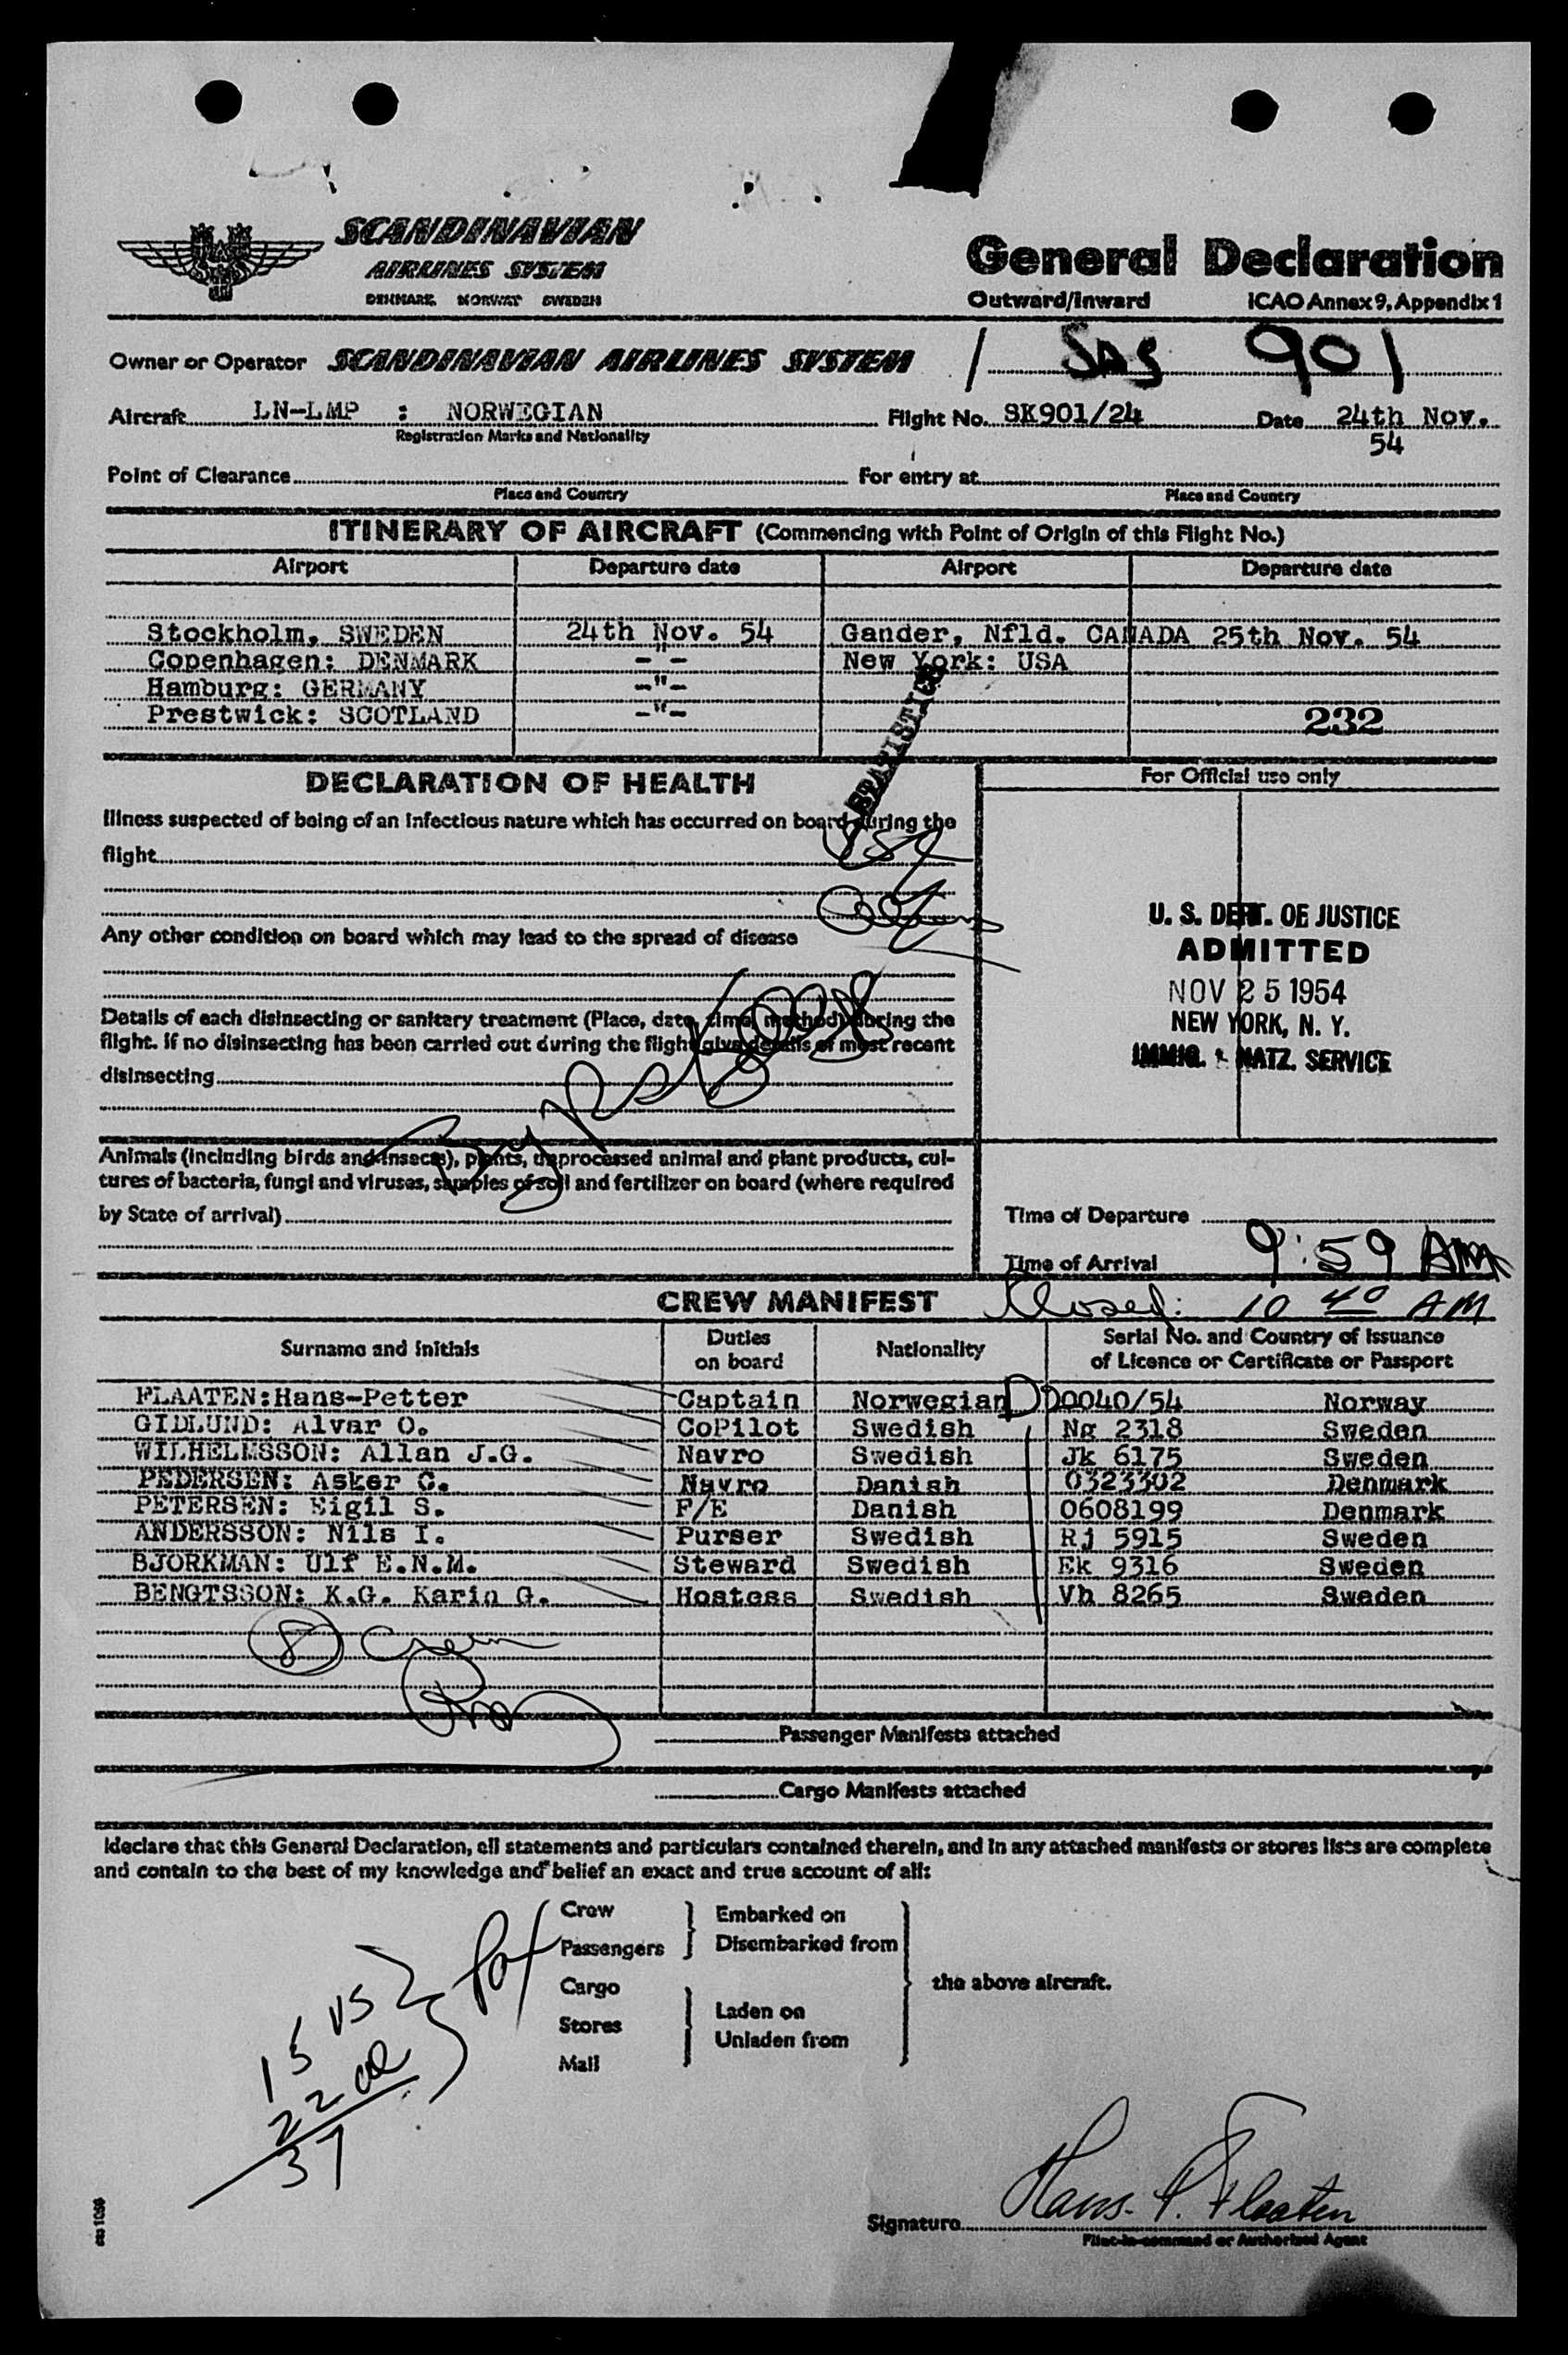 SCANDINAVIAN
AIRLINES SYSTEM
DENMARK NORWAY SWEDEN
General Declaration
Outward/Inward ICAO Annex 9, Appendix 1
Owner or Operator SCANDINAVIAN AIRLINES SYSTEM / SAS 901
Aircraft LN-LMP : NORWEGIAN Flight No. SK901/24 Date 24th Nov.
54
Registration Marks and Nationality
Point of Clearance For entry at
Place and Country Place and Country
ITINERARY OF AIRCRAFT (Commencing with Point of Origin of this Flight No.)
Airport Departure date Airport Departure date
Stockholm, SWEDEN 24th Nov. 54 Gander, Nfld. CANADA 25th Nov. 54
Copenhagen: DENMARK -"- New York: USA
Hamburg: GERMANY -"-
Prestwick: SCOTLAND -"- 232
STATISTICS
DECLARATION OF HEALTH
For Official use only
Illness suspected of being of an infectious nature which has occurred on board during the
flight
Any other condition on board which may lead to the spread of disease
U. S. DEPT. OF JUSTICE
ADMITTED
NOV 25 1954
NEW YORK, N. Y.
IMMIG. & NATZ. SERVICE
Details of each disinsecting or sanitary treatment (Place, date, time, method) during the
flight. If no disinsecting has been carried out during the flight give details of most recent
disinsecting
Animals (including birds and insects), plants, unprocessed animal and plant products, cul-
tures of bacteria, fungi and viruses, samples of soil and fertilizer on board (where required
by State of arrival)
Time of Departure
Time of Arrival 9:59 AM
CREW MANIFEST Closed: 10 40 AM
Surname and initials Duties on board Nationality Serial No. and Country of Issuance of Licence or Certificate or Passport
FLAATEN:Hans-Petter Captain Norwegian D0040/54 Norway
GIDLUND: Alvar O. CoPilot Swedish Ng 2318 Sweden
WILHELMSSON: Allan J.G. Navro Swedish Jk 6175 Sweden
PEDERSEN: Asker C. Navro Danish 0323302 Denmark
PETERSEN: Eigil S. F/E Danish 0608199 Denmark
ANDERSSON: Nils I. Purser Swedish Rj 5915 Sweden
BJORKMAN: Ulf E.N.M. Steward Swedish Ek 9316 Sweden
BENGTSSON: K.G. Karin G. Hostess Swedish Vh 8265 Sweden
8 Crew
Passenger Manifests attached
Cargo Manifests attached
I declare that this General Declaration, all statements and particulars contained therein, and in any attached manifests or stores lists are complete
and contain to the best of my knowledge and belief an exact and true account of all:
Crew
Passengers
Embarked on
Disembarked from
Cargo
Stores
Mail
Laden on
Unladen from
the above aircraft.
15 US
22
37
Signature Hans. P. Flaaten
Pilot-in-command or Authorized Agent